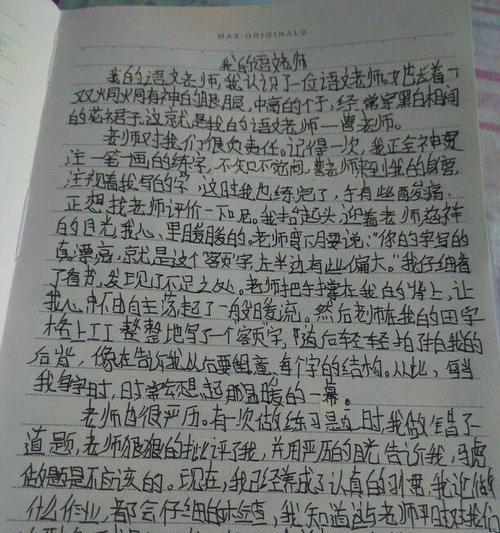 MAX ORIGINALS
我的语文老师
我的语文老师,我认识了一位语文老师。她长着一
双炯炯有神的眼睛,中高的个子,经常穿黑白相间
的花裙子。这就是我的语文老师——曹老师。
老师对我们很负责任。记得一次,我正全神贯
注一笔一画的练字,不知不觉间,曹老师来到我的身旁,
注视着我写的字,这时我也练完了,手有些酸痛,
正想找老师评价一下呢。我抬起头,迎着老师慈祥
的目光我心里暖暖的。老师弯下月要说:“你的字写的
真漂亮,就是这个“客页”字,左半边有些偏大。”我仔细看
了看,发现了不足之处。老师把手撑在我的背上,让
我心中不由自主荡起了一般暖流。然后老师在我的田字
格上工工整整地写了一个“客页”字,道后轻轻拍了拍我的
后背,像在告诉我以后要注意每个字的结构。从此,每当
我写字时,时常在想起那温暖的一幕。
老师也很严历。有一次做练习题时,我做错了一
道题,老师狠狠的批评了我,并用严历的目光告诉我,马虎
做题是不应该的。现在,我已经养成了认真的习惯,我让做
什么作业,都会仔细的检查,我知道这与老师平时对我们